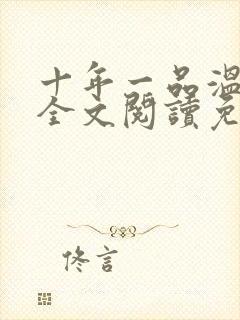 十年一品温
全文閱讀免
佟言